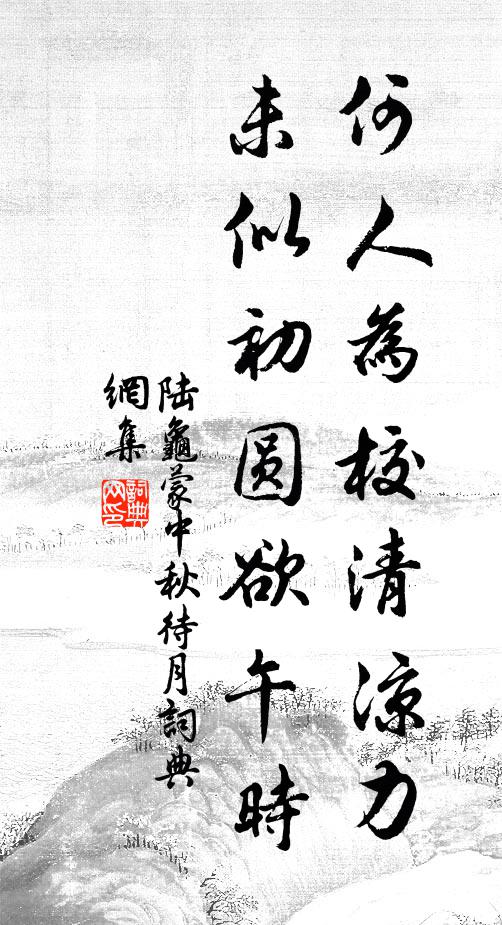 何人為校清涼力
未似初圓欲午時
陸龜蒙中秋待月詞典
網集
詞典
网印